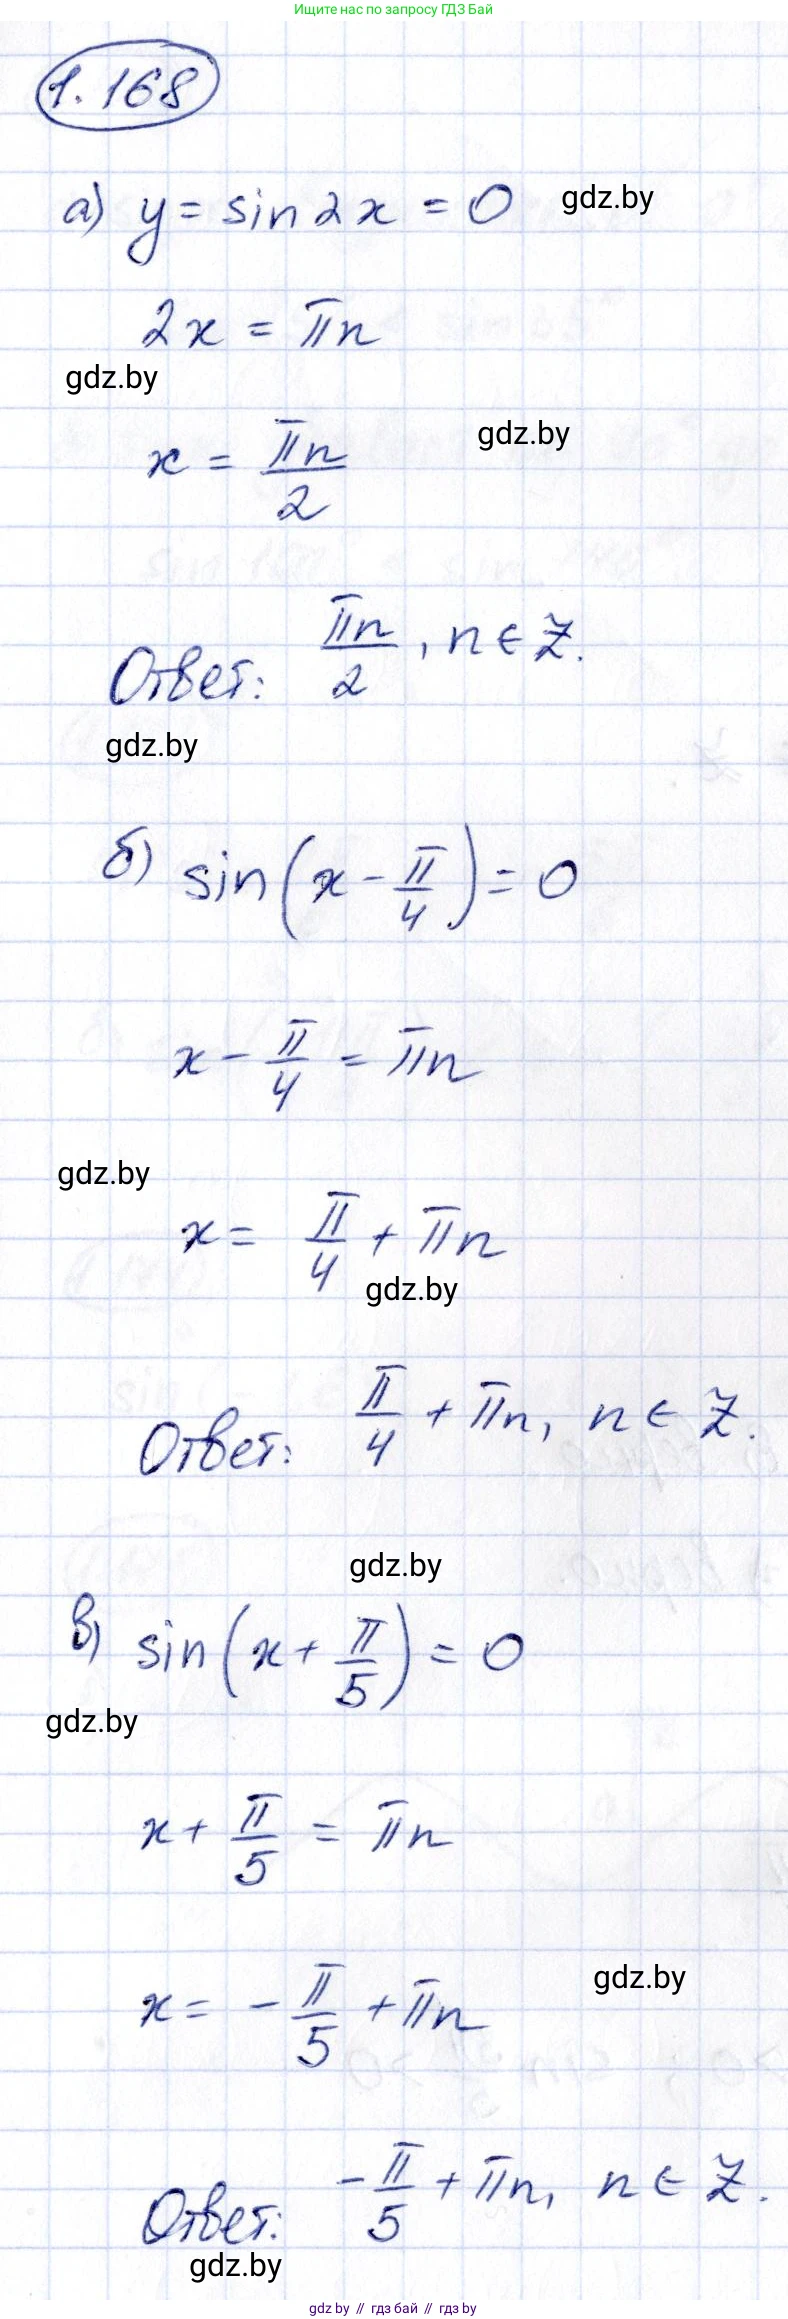 Ищите нас по запросу ГДЗ Бай
1.168
а) y = sin 2x = 0
gdz.by
2x = πn
gdz.by
gdz.by
x = πn/2
Ответ: πn/2, n ∈ Z.
gdz.by
б) sin(x - π/4) = 0
x - π/4 = πn
gdz.by
x = π/4 + πn
gdz.by
Ответ: π/4 + πn, n ∈ Z.
gdz.by
в) sin(x + π/5) = 0
gdz.by
x + π/5 = πn
gdz.by
x = - π/5 + πn
Ответ: - π/5 + πn, n ∈ Z.
gdz.by
gdz by // гдз бай // гдз by